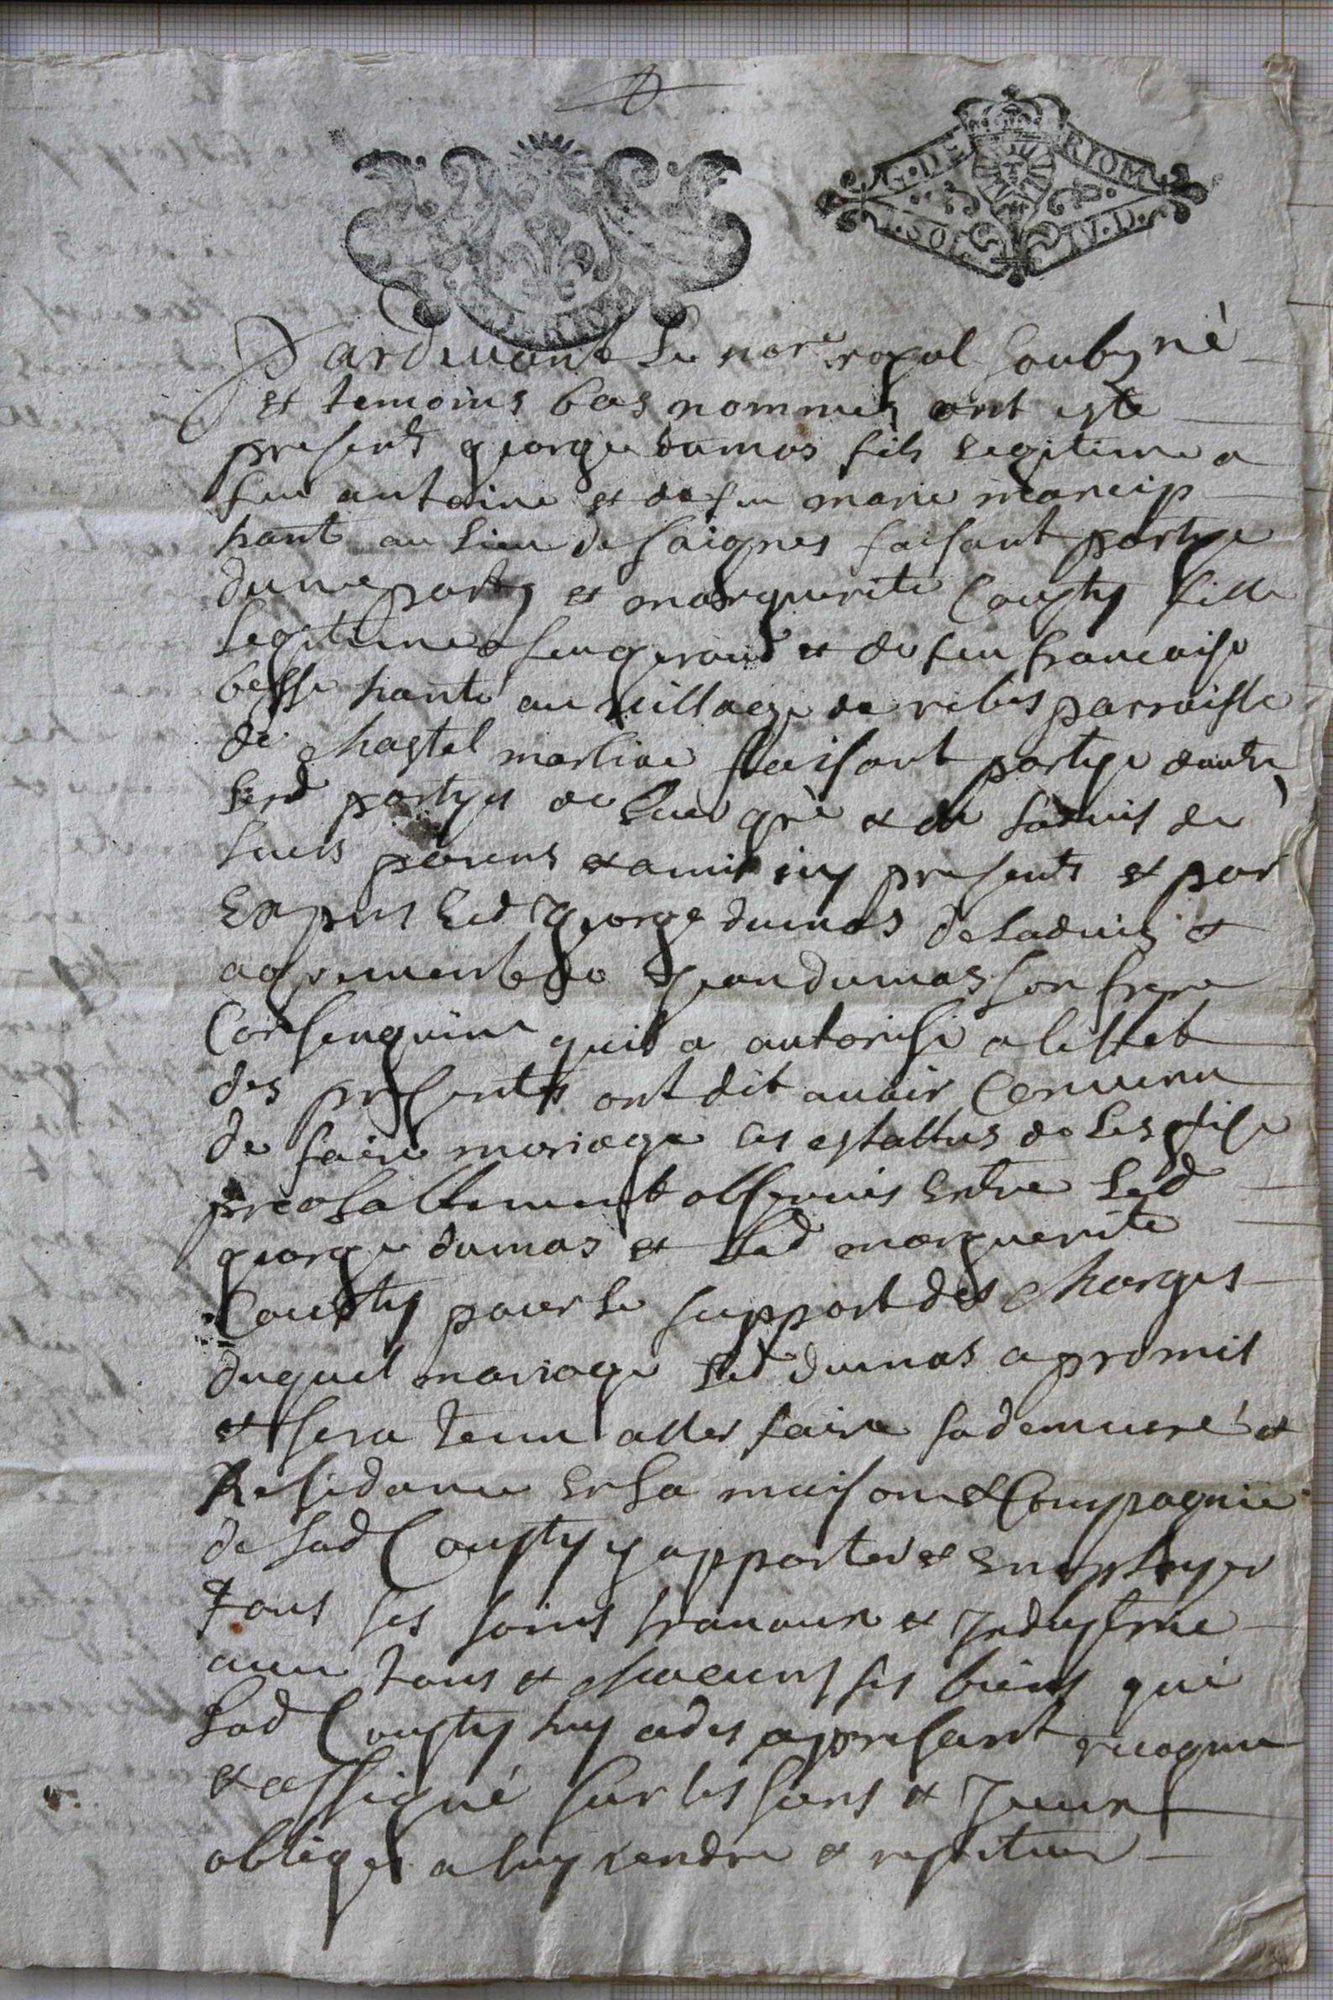 G. DE RIOM
I. SOL IV. D.
G. DE RIOM
Pardevant le nore royal soubzné
et temoins bas nommez ont esté
presentz george dumas fils legitime a
feu antoine et de feu marie mancip
hant au lieu de saignes faisant partye
dune party et marguerite Cousty fille
legitime a feu geraud et de feu francoise
besse hante au village de ribes parroisse
de chastel marliac faisant partye dautre
lesd partyes de leur gré et de ladvis de
leurs parens et amis icy presents et par
Expres led george dumas de ladvis et
agrement de jean dumas son frere
Consenguin quil a autorisé a leffet
des presentes ont dit avoir Convenu
de faire mariage les estattus de lesglise
preallablement observés entre led
george dumas et lad marguerite
Cousty pour le support des charges
duquel mariage led dumas a promis
et sera tenu aller faire sa demeure et
Residance En la maison et Compagnie
de lad Cousty y apporter et employer
tous ses soins travaux et Industrie
avec tous et chacuns ses biens que
lad Cousty luy a des apresant recognu
et assigné sur les siens et
obliges a luy rendre et restituer